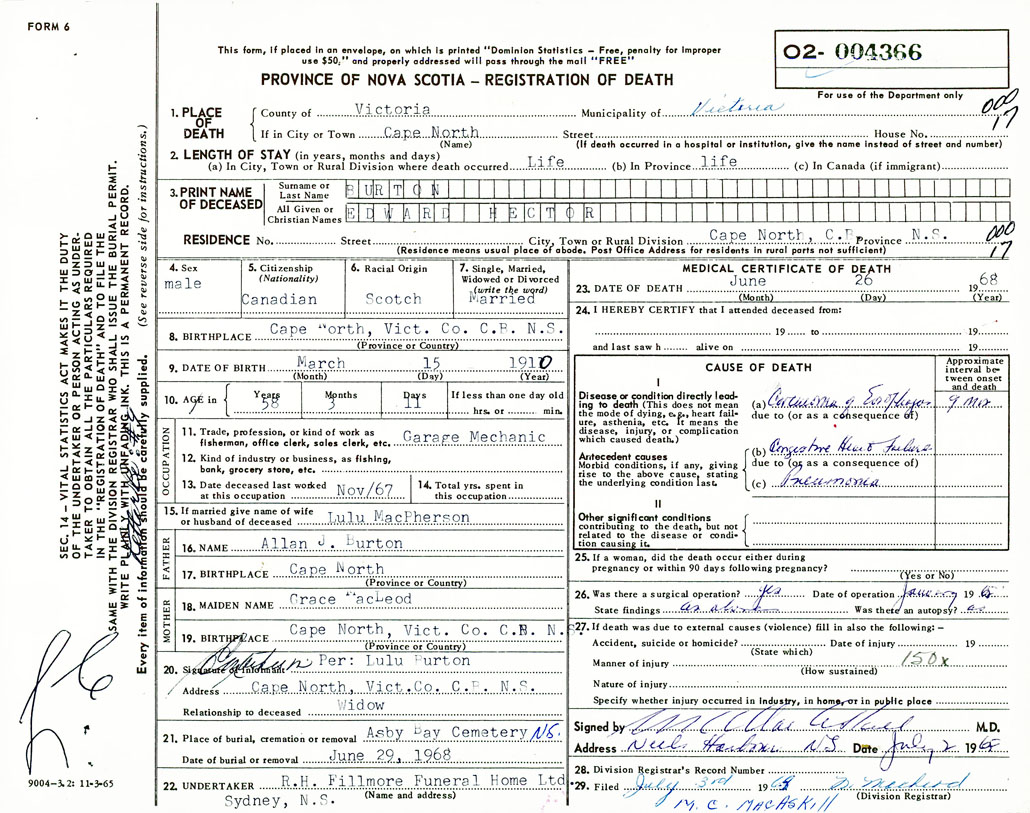 FORM 6
This form, if placed in an envelope, on which is printed "Dominion Statistics – Free, penalty for improper
use $50," and properly addressed will pass through the mail "FREE"
PROVINCE OF NOVA SCOTIA – REGISTRATION OF DEATH
O2- 004366
For use of the Department only
000
17
1. PLACE OF DEATH
County of Victoria Municipality of Victoria
If in City or Town Cape North Street House No.
(Name) (If death occurred in a hospital or institution, give the name instead of street and number)
2. LENGTH OF STAY (in years, months and days)
(a) In City, Town or Rural Division where death occurred Life (b) In Province life (c) In Canada (if immigrant)
3. PRINT NAME OF DECEASED
Surname or Last Name BURTON
All Given or Christian Names EDWARD HECTOR
RESIDENCE No. Street City, Town or Rural Division Cape North, C.B. Province N.S.
(Residence means usual place of abode. Post Office Address for residents in rural parts not sufficient)
000
17
4. Sex
male
5. Citizenship
(Nationality)
Canadian
6. Racial Origin
Scotch
7. Single, Married,
Widowed or Divorced
(write the word)
Married
8. BIRTHPLACE Cape North, Vict. Co. C.B. N.S.
(Province or Country)
9. DATE OF BIRTH March 15 1910
(Month) (Day) (Year)
10. AGE in Years Months Days If less than one day old
58 3 11 hrs. or min.
OCCUPATION
11. Trade, profession, or kind of work as
fisherman, office clerk, sales clerk, etc. Garage Mechanic
12. Kind of industry or business, as fishing,
bank, grocery store, etc.
13. Date deceased last worked
at this occupation Nov/67
14. Total yrs. spent in
this occupation
15. If married give name of wife
or husband of deceased Lulu MacPherson
FATHER
16. NAME Allan J. Burton
17. BIRTHPLACE Cape North
(Province or Country)
MOTHER
18. MAIDEN NAME Grace MacLeod
19. BIRTHPLACE Cape North, Vict. Co. C.B. N.S.
(Province or Country)
20. Signature of informant Per: Lulu Burton
Address Cape North, Vict.Co. C.B. N.S.
Relationship to deceased Widow
21. Place of burial, cremation or removal Asby Bay Cemetery NS.
Date of burial or removal June 29, 1968
22. UNDERTAKER R.H. Fillmore Funeral Home Ltd
(Name and address)
Sydney, N.S.
MEDICAL CERTIFICATE OF DEATH
23. DATE OF DEATH June 26 1968
(Month) (Day) (Year)
24. I HEREBY CERTIFY that I attended deceased from:
19 to 19
and last saw h alive on 19
CAUSE OF DEATH
Approximate interval between onset and death
I
Disease or condition directly leading to death (This does not mean the mode of dying, e.g., heart failure, asthenia, etc. It means the disease, injury, or complication which caused death.)
(a) Carcinoma of Esophagus 9 mos
due to (or as a consequence of)
Antecedent causes
Morbid conditions, if any, giving rise to the above cause, stating the underlying condition last.
(b) Congestive Heart Failure
due to (or as a consequence of)
(c) Pneumonia
II
Other significant conditions
contributing to the death, but not
related to the disease or condition causing it.
25. If a woman, did the death occur either during
pregnancy or within 90 days following pregnancy?
(Yes or No)
26. Was there a surgical operation? yes Date of operation January 1968
State findings as above Was there an autopsy?
27. If death was due to external causes (violence) fill in also the following: –
Accident, suicide or homicide? Date of injury 19
(State which)
Manner of injury 150x
(How sustained)
Nature of injury
Specify whether injury occurred in industry, in home, or in public place
Signed by M.D.
Address Neils Harbour NS Date July 2 1968
28. Division Registrar's Record Number
29. Filed July 3rd 1968
(Division Registrar)
M. C. MACASKILL
SEC. 14 – VITAL STATISTICS ACT MAKES IT THE DUTY
OF THE UNDERTAKER OR PERSON ACTING AS UNDER-
TAKER TO OBTAIN ALL THE PARTICULARS REQUIRED
IN THE "REGISTRATION OF DEATH" AND TO FILE THE
SAME WITH THE DIVISION REGISTRAR WHO SHALL ISSUE THE BURIAL PERMIT.
WRITE PLAINLY WITH UNFADING INK. THIS IS A PERMANENT RECORD.
Every item of information should be carefully supplied. (See reverse side for instructions.)
9004-3.2: 11-3-65